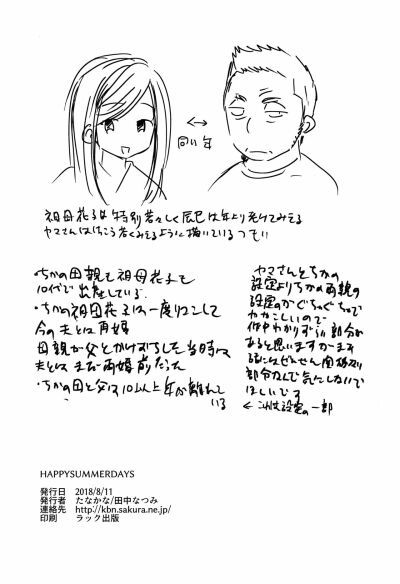 同い年
祖母花子は特別若々しく辰巳は年より老けてみえる
ヤマさんはけっこう若くみえるように描いているつもり
・ちかの母親も祖母花子も
10代で出産している。
・ちかの祖母花子は一度りこんして
今の夫とは再婚
母親が父とかけおちした当時は
夫とはまだ再婚前だった
・ちかの母と父は10以上年が離れて
いる
ヤマさんとちかの
設定よりちかの両親の
設定のがぐちゃぐちゃで
ややこしいので
作中わかりずらい部分が
あると思いますがまぁ
話にはぜんぜん関係ない
部分なんで気にしないで
ほしいです
← これは設定の一部
HAPPYSUMMERDAYS
発行日 2018/8/11
発行者 たなかな/田中なつみ
連絡先 http://kbn.sakura.ne.jp/
印刷 ラック出版